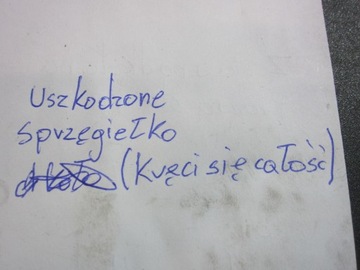 Uszkodzone
sprzęgiełko
(Kręci się całość)